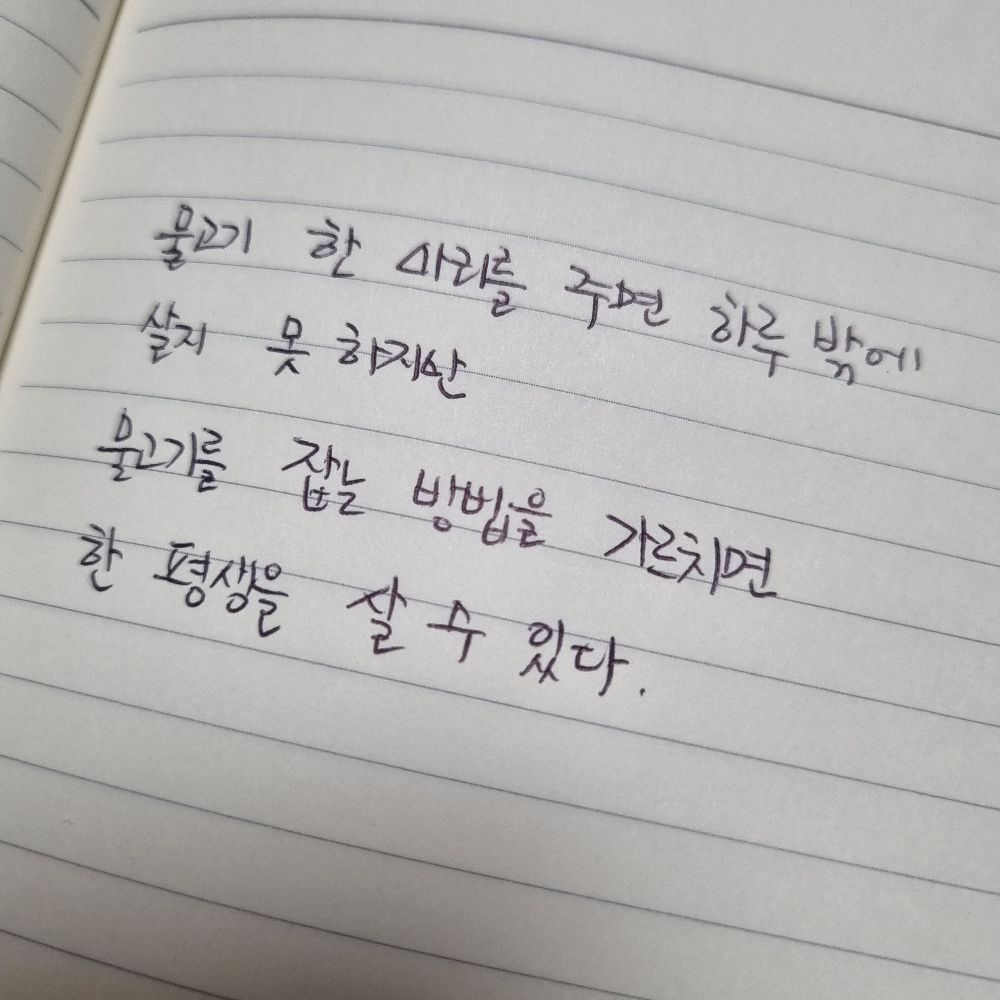 물고기 한 마리를 주면 하루 밖에
살지 못 하지만
물고기를 잡는 방법을 가르치면
한 평생을 살 수 있다.